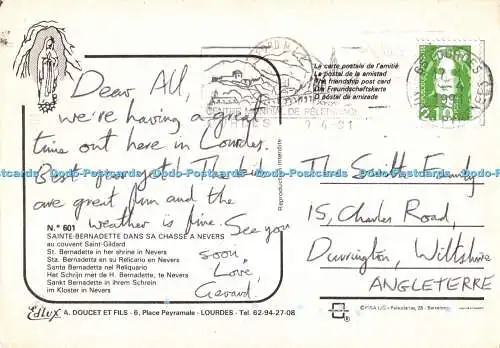 Dear All,
we're having a great
time out here in Lourdes.
Best year yet! The kids
are great fun and the
weather is fine. See you
soon,
Love,
Gerard.
La carte postale de l'amitié
La postal de la amistad
The friendship post card
Die Freundschaftskarte
O postal da amizade
2,10
The Scott Family
15, Charles Road,
Durrington, Wiltshire
ANGLETERRE
Reproduction interdite
N.° 601
SAINTE-BERNADETTE DANS SA CHASSE A NEVERS
au couvent Saint-Gildard
St. Bernadette in her shrine in Nevers
Sta. Bernardette en su Relicario en Nevers
Santa Bernadette nel Reliquario
Het Schrijn met de H. Bernadette, te Nevers
Sankt Bernadette in ihrem Schrein
im Kloster in Nevers
A. DOUCET ET FILS - 6, Place Peyramale - LOURDES - Tel. 62-94-27-08
Dodo-Postcards